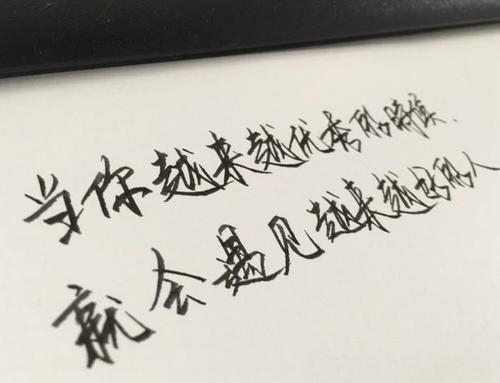 当你越来越优秀的時候.
就会遇见越来越好的人